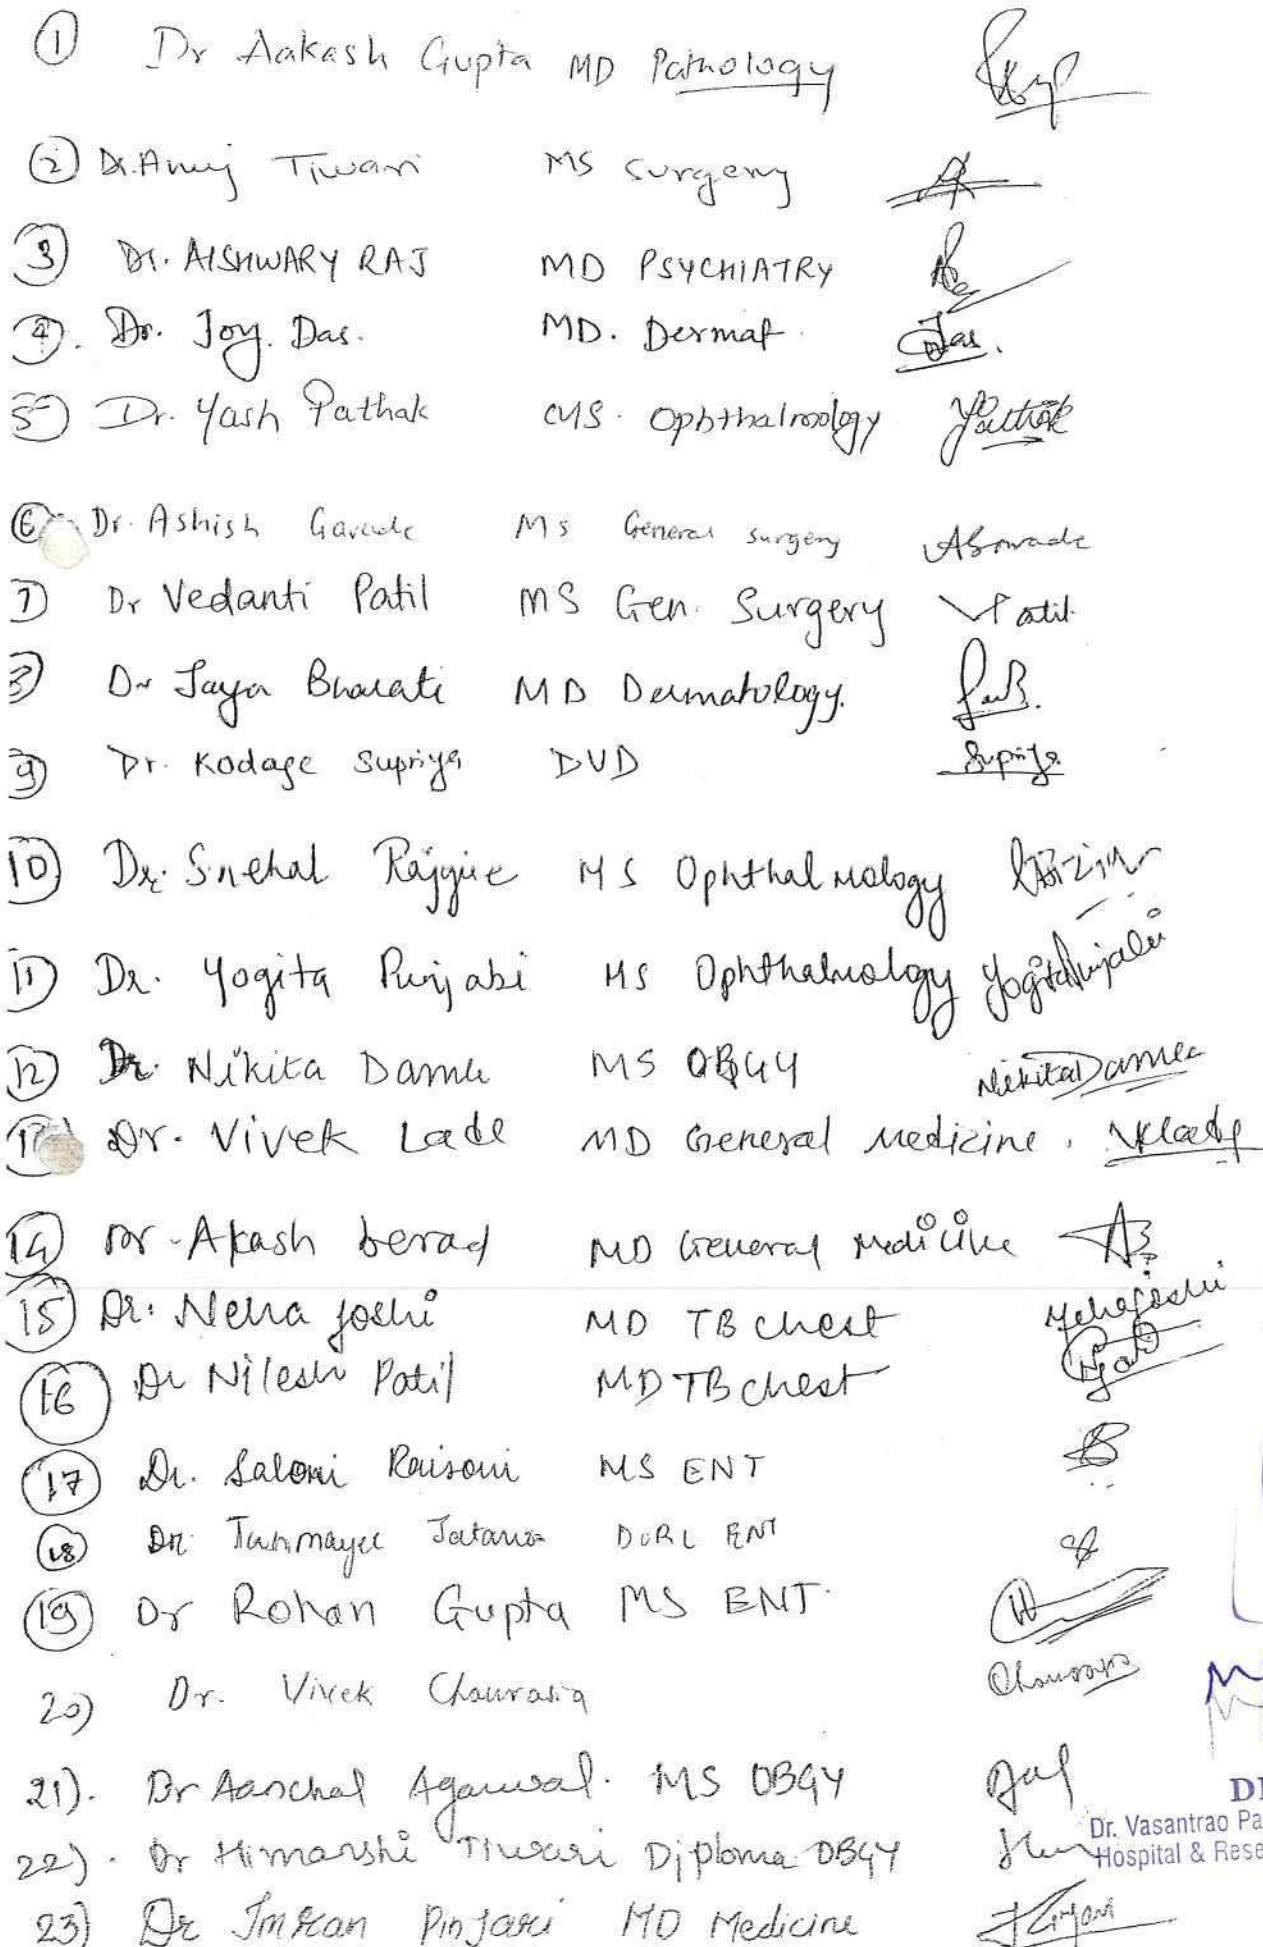 1 Dr Aakash Gupta MD Pathology
2 Dr. Anuj Tiwari MS Surgery
3 Dr. AISHWARY RAJ MD PSYCHIATRY
4. Dr. Joy. Das. MD. Dermat. Das.
5 Dr. Yash Pathak MS. Ophthalmology YPathak
6 Dr. Ashish Garude MS General surgery
7 Dr Vedanti Patil MS Gen. Surgery VPatil
8 Dr Jaya Bharati MD Dermatology.
9 Dr. Kodage Supriya DVD Supriya
10 Dr. Snehal Rajgire MS Ophthalmology
11 Dr. Yogita Punjabi MS Ophthalmology Yogita Punjabi
12 Dr. Nikita Damle MS OBGY Nikita Damle
Dr. Vivek Lade MD General Medicine. VLade
14 Dr. Akash berad MD General Medicine
15 Dr. Neha Joshi MD TB chest Neha Joshi
16 Dr Nilesh Patil MD TB chest
17 Dr. Saloni Raisoni MS ENT
18 Dr. Tanmayee DORL ENT
19 Dr Rohan Gupta MS ENT.
20) Dr. Vivek Chaurasia Chaurasia
21). Dr Aanchal Agarwal. MS OBGY
22). Dr Himanshi Tiwari Diploma OBGY
23) Dr Imran Pinjari MD Medicine
Dr. Vasantrao Pa
Hospital & Rese